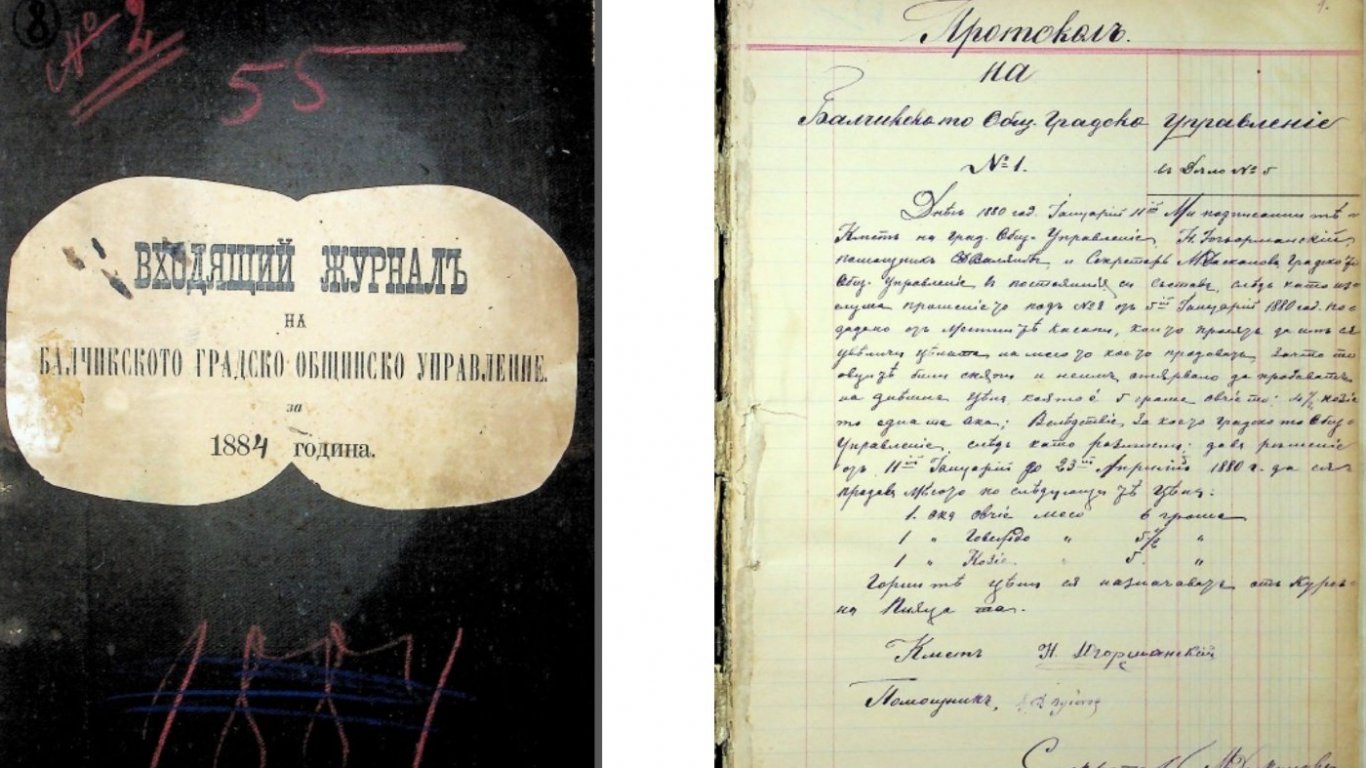 8
№ 2
55
ВХОДЯЩИЙ ЖУРНАЛЪ
НА
БАЛЧИКСКОТО ГРАДСКО-ОБЩИНСКО УПРАВЛЕНИЕ.
за
1884 година.
1884
1.
Протоколъ.
на
Балчикското Общ. Градско Управление
№ 1.
въ Дѣло № 5
Днесь 1880 год. Јануарій 11ий Ми подписанитѣ
Кметъ на Град. Общ. Управление,
помощникъ и Секретарь Градско
Общ. Управление въ постоянния си съставъ, слѣдъ като из-
слуша прошението подъ № 8 отъ 5ий Јануарій 1880 год. по-
дадено отъ касапи, които просятъ да имъ ся
увѣличи цѣната на месото което продаватъ, защото
били и неимъ да продаватъ
на цѣна, която е 5 гроша овчето: 4½ козие
то едната ока; Вследствие, за което градското Общ.
Управление, слѣдъ като размисли: даде решение
отъ 11ий Јануарій до 23ий Априлий 1880 г. да ся
продава Мѣсото по слѣдующитѣ Цѣни:
1. ока овчие месо 6 гроша
1 " Говеждо " 5½ "
1 " Козие " 5. "
Горнитѣ цѣни ся назначаватъ отъ Курсъ
на Пияцата.
Кметъ Н.
Помощникъ,